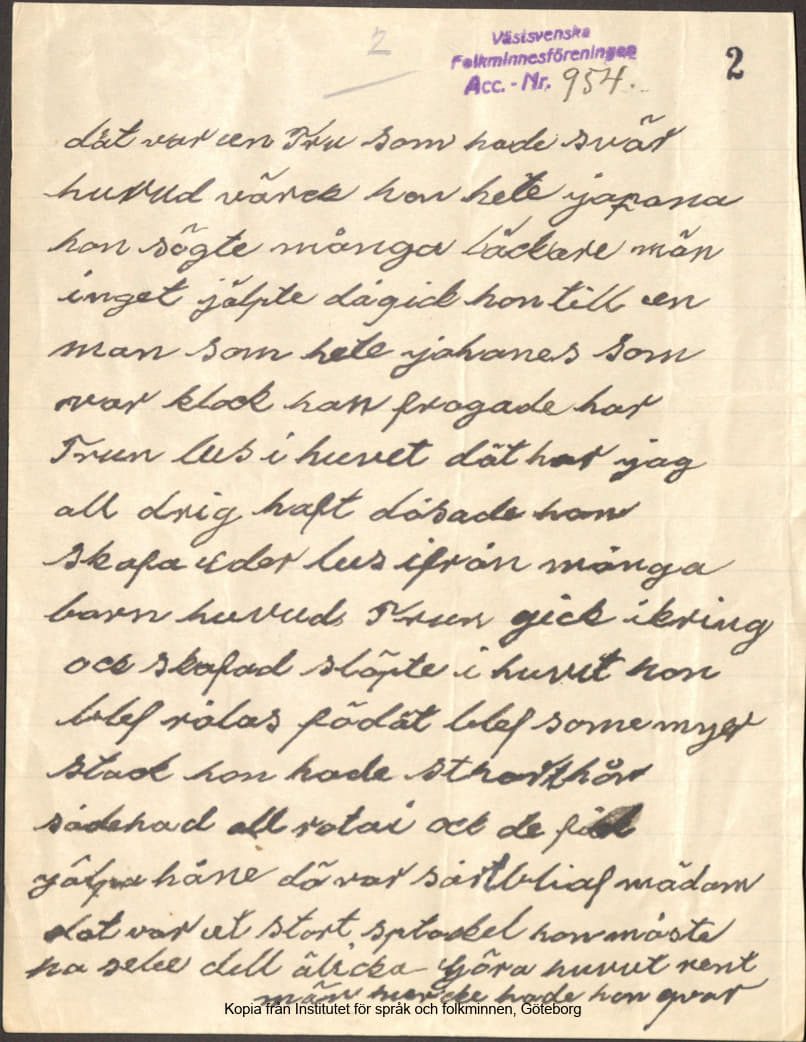 2
Västsvenska
Folkminnesföreningen
Acc. - Nr. 954.
2
dät var en Fru som hade svår
huvud värck hon hete japana
hon sögte många läckare män
inget jälpte dågick hon till en
man som hete johanes som
var klock han fragade har
Frun lus i huvet dät har jag
all drig haft dåsade han
skafa eder lus ifrån många
barn huvud Frun gick ikring
ock skafad släpte i huvut hon
blef rålas födät blef some myer
stack hon hade stort hår
sådehad all ock de
jälpa håne dä var mädam
dät var et stort sptackel hon måste
ha göra huvut rent
män hade hon qvar
Kopia från Institutet för språk och folkminnen, Göteborg